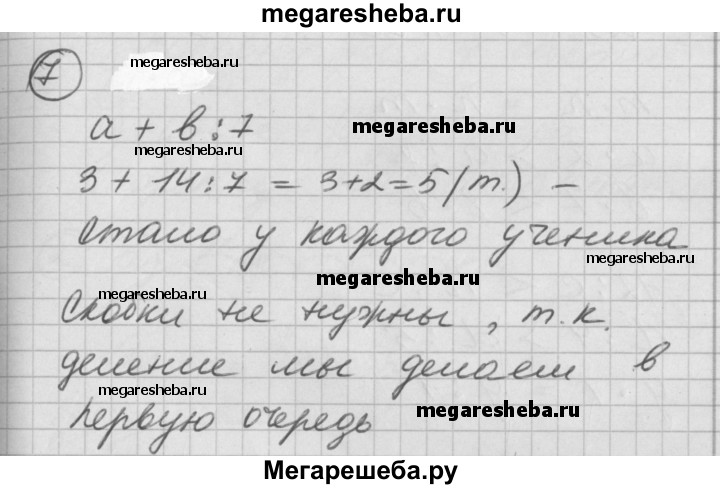 megaresheba.ru
7
megaresheba.ru
a + b : 7
megaresheba.ru
megaresheba.ru
3 + 14 : 7 = 3+2=5(т.) –
стало у каждого ученика
megaresheba.ru
megaresheba.ru
megaresheba.ru
Скобки не нужны, т.к.
деление мы делаем в
megaresheba.ru
первую очередь
megaresheba.ru
Мегарешеба.ру